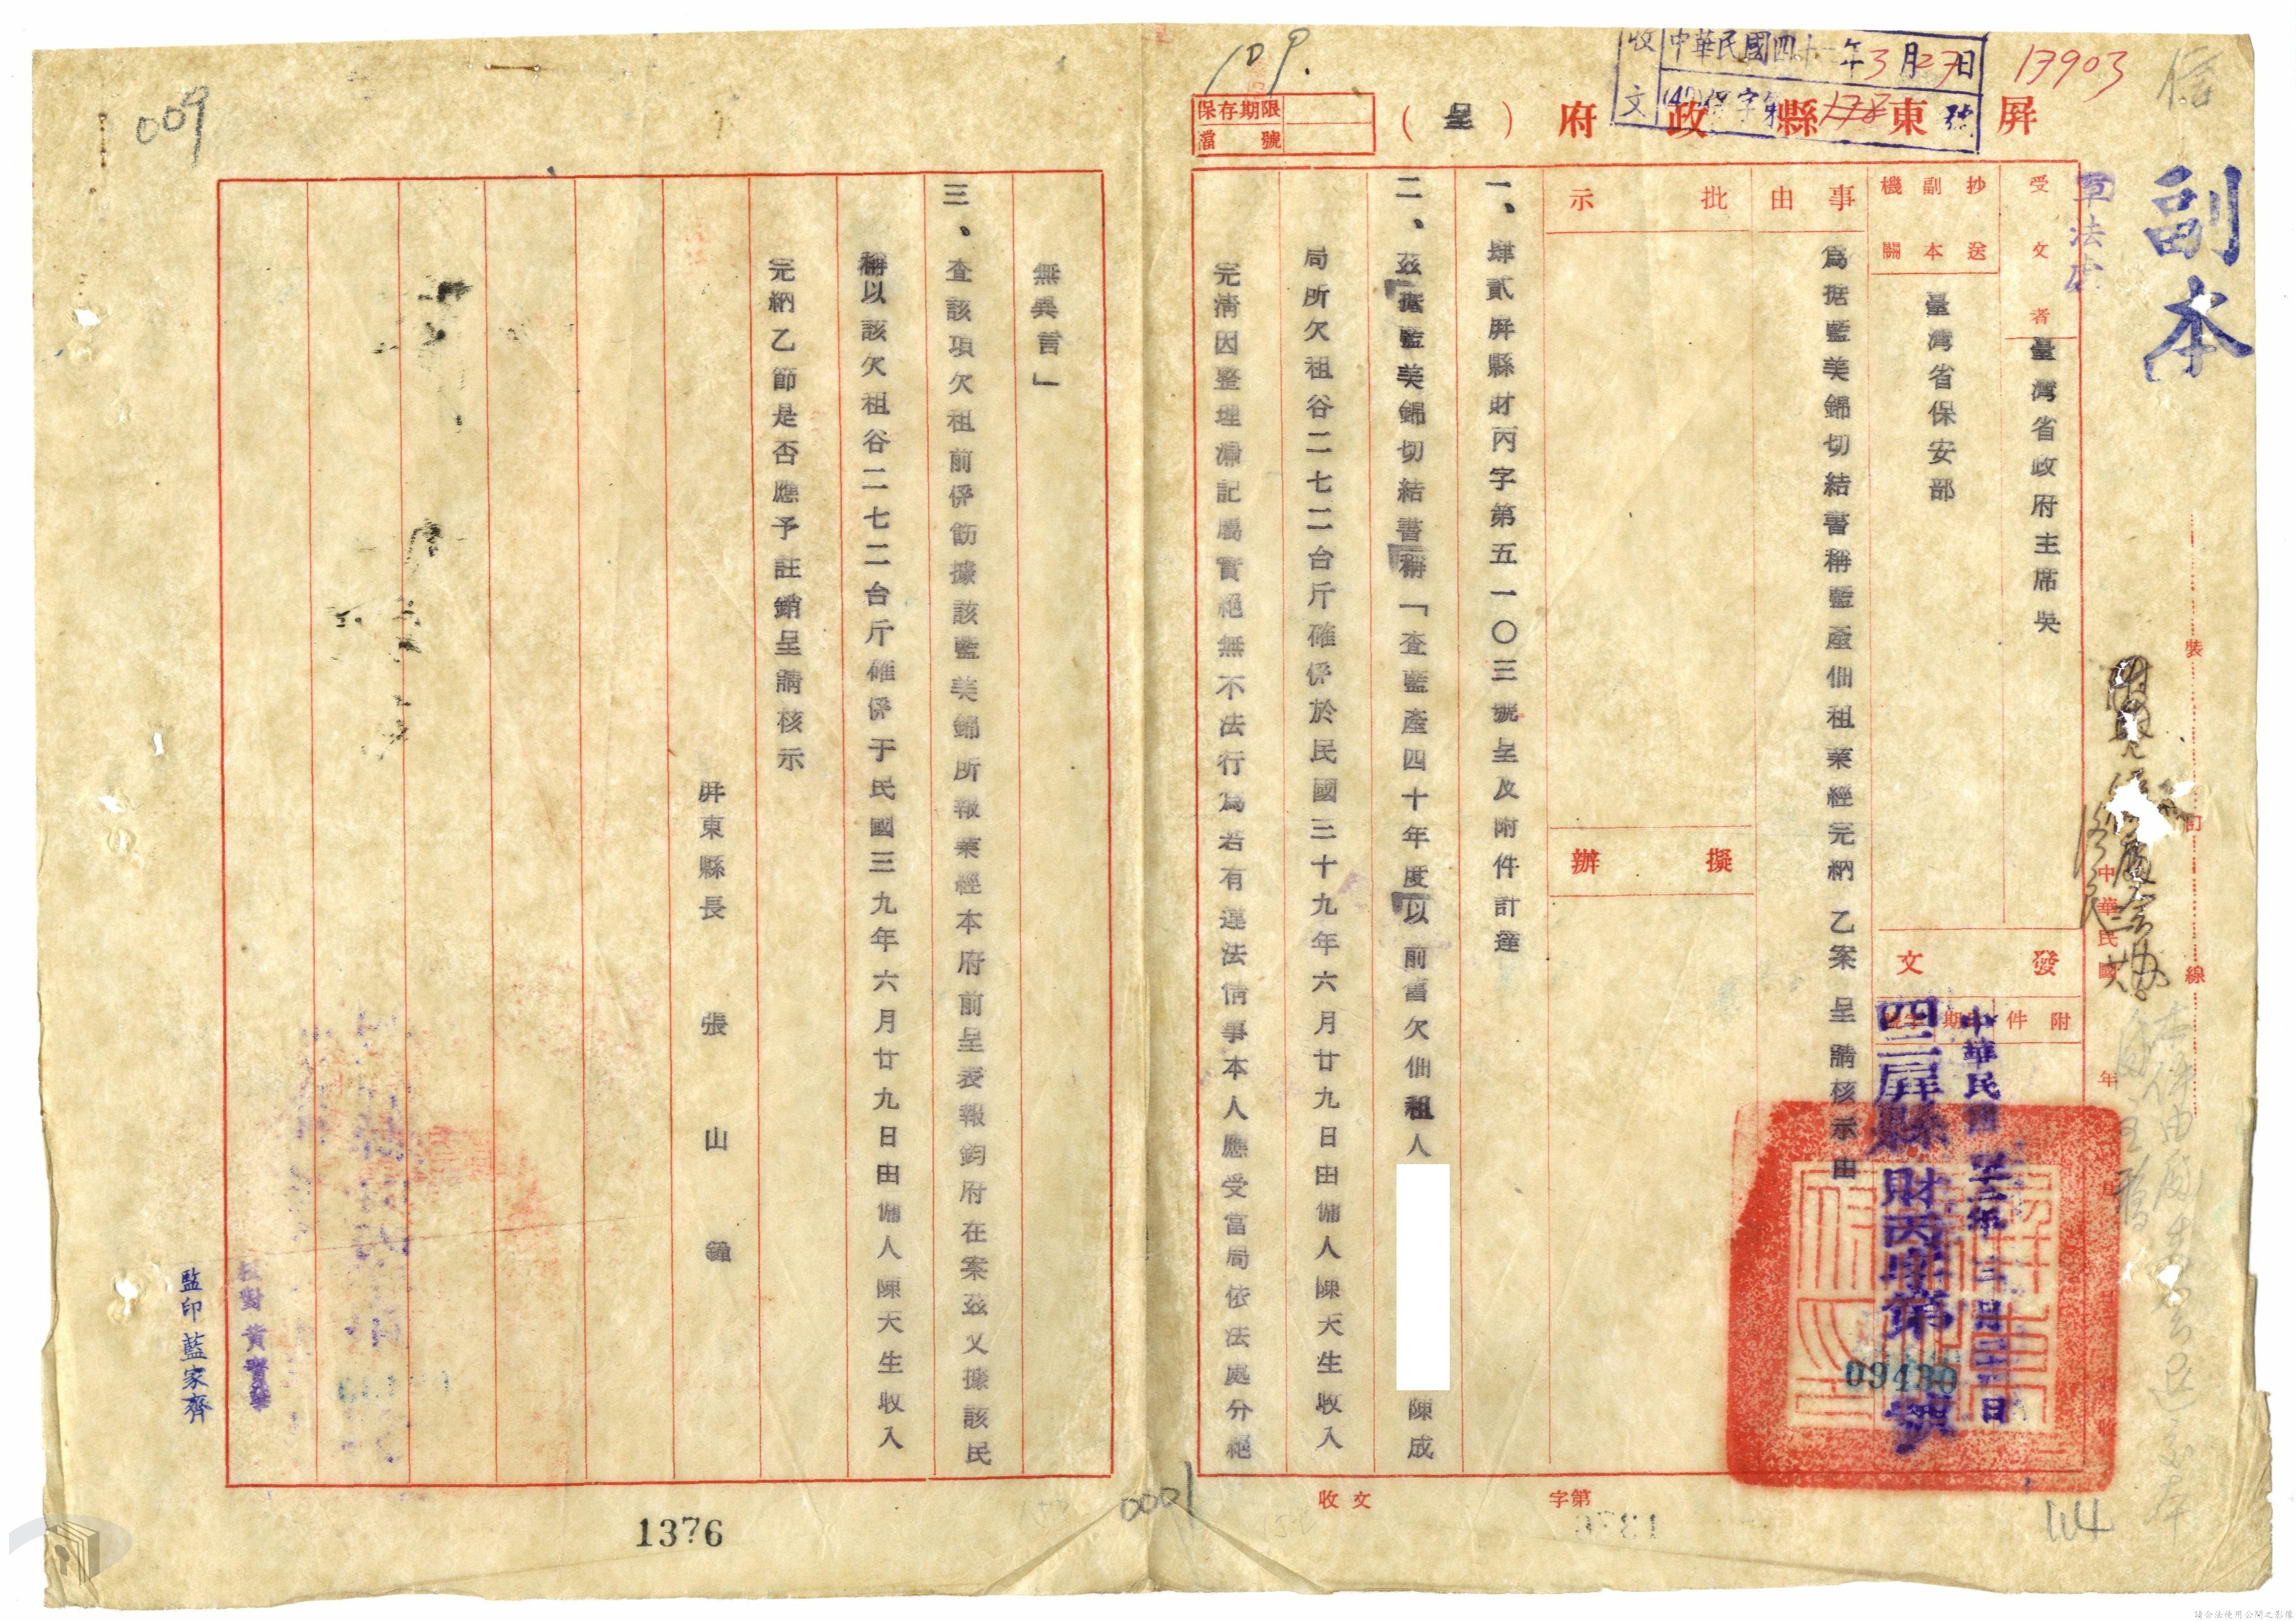 副本
屏東縣政府(呈)
保存期限
檔號
收文
中華民國四十二年3月27日
17903
109.
009
軍法處
受文者
臺灣省政府主席吳
抄送副本機關
臺灣省保安部
事由
為据藍美錦切結書稱藍產佃租業經完納乙案呈請核示由
批示
擬辦
發文
附件
日期
字號
中華民國四十二年三月二十三日
四二屏縣財丙字第
09430
號
一、肆貳屏縣財丙字第五一〇三號呈及附件計達
二、茲據藍美錦切結書稱「查藍產四十年度以前舊欠佃租人
陳成
局所欠租谷二七二台斤確係於民國三十九年六月廿九日由傭人陳天生收入
完清因整理漏記屬實絕無不法行為若有違法情事本人應受當局依法處分絕
無異言」
三、查該項欠租前係飭據該藍美錦所報業經本府前呈表報鈞府在案茲又據該民
稱以該欠租谷二七二台斤確係于民國三九年六月廿九日由傭人陳天生收入
完納乙節是否應予註銷呈請核示
屏東縣長 張山鐘
校對 黃
監印 藍家齊
裝訂線
中華民國 年
收文
字第
0001
1376
114
請合法使用公開之影像